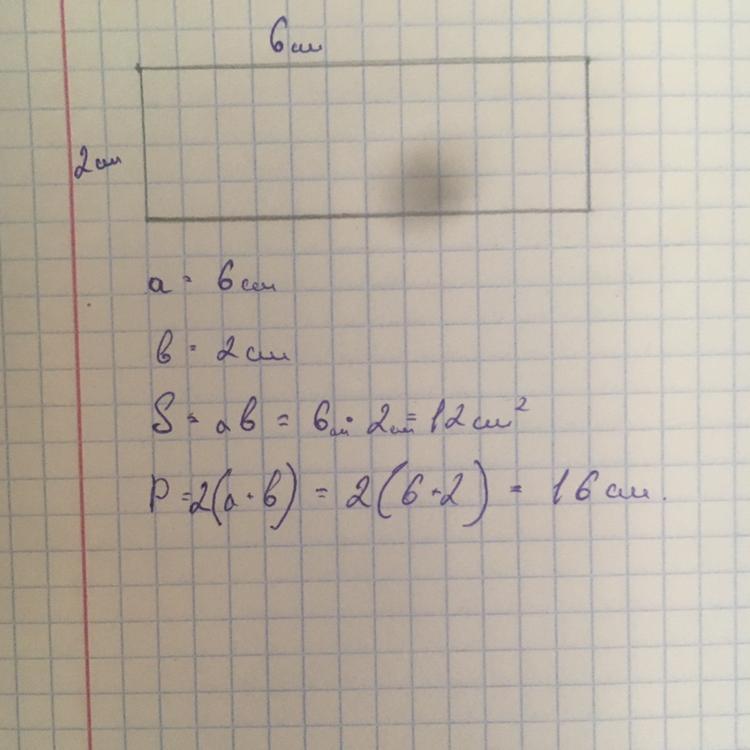 6см
2см
a = 6см
в = 2см
S = aв = 6см · 2см = 12см²
P = 2(a + в) = 2(6 + 2) = 16см.